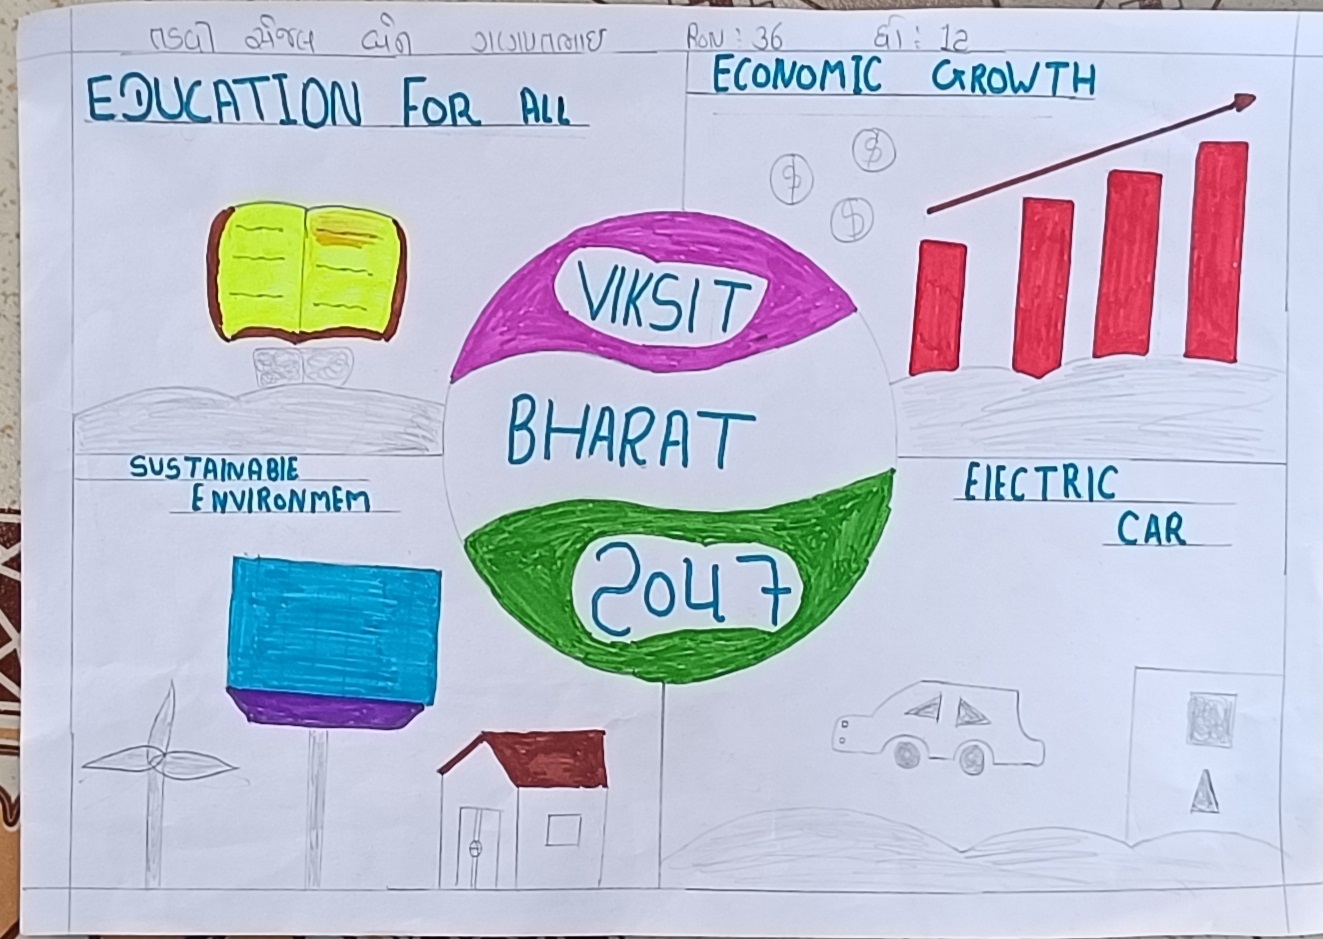 RON : 36 ધો : 12
EDUCATION FOR ALL
ECONOMIC GROWTH
$ $ $
VIKSIT
BHARAT
2047
SUSTAINABLE
ENVIRONMEM
ElECTRIC
CAR